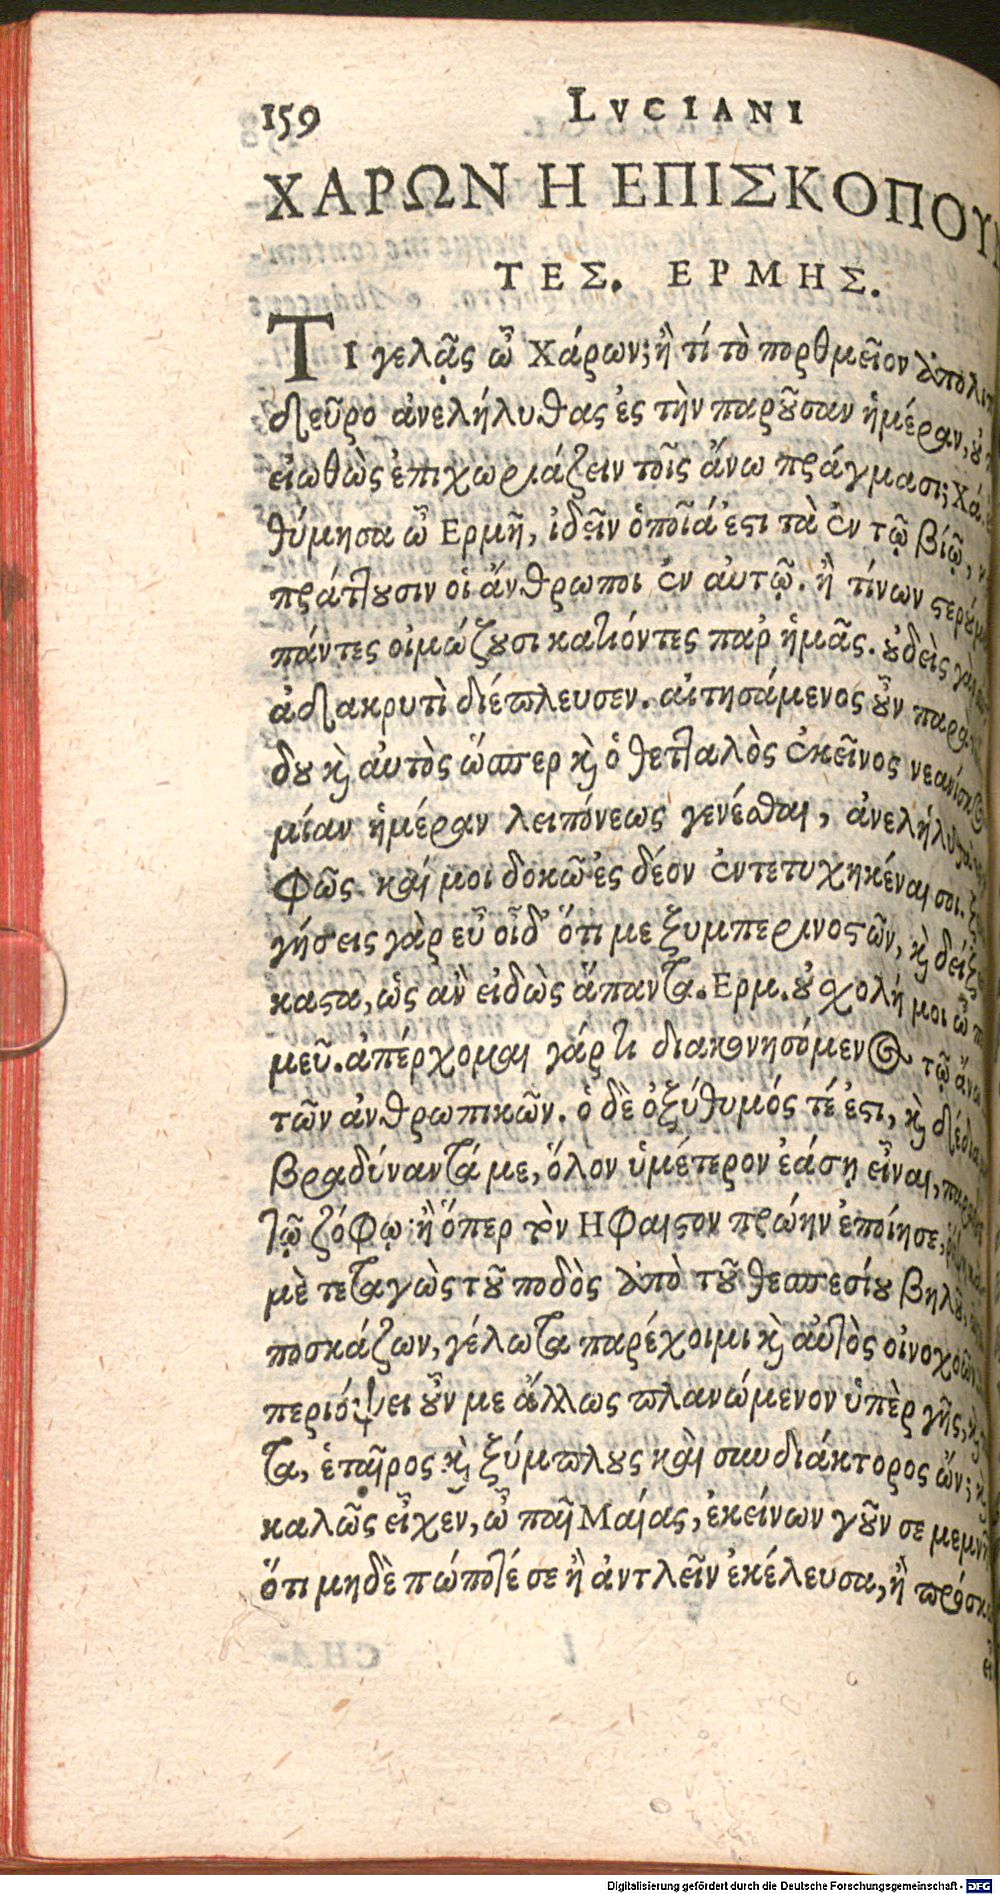 159 LVCIANI
ΧΑΡΩΝ Η ΕΠΙΣΚΟΠΟΥΝ
ΤΕΣ. ΕΡΜΗΣ.
ΤΙ γελᾷς ὦ Χάρων; ἢ τί τὸ πορθμεῖον ἀπολιπ
δεῦρο ἀνελήλυθας ἐς τὴν παροῦσαν ἡμέραν, οὐ
εἰωθὼς ἐπιχωριάζειν τοῖς ἄνω πράγμασι; Χά.
θύμησα ὦ Ερμῆ, ἰδεῖν ὁποῖά ἐστι τὰ ἐν τῷ βίῳ,
πράττουσιν οἱ ἄνθρωποι ἐν αὐτῷ. ἢ τίνων στερούμ
πάντες οἰμώζουσι κατιόντες παρ' ἡμᾶς. οὐδεὶς γὰρ
ἀδακρυτὶ διέπλευσεν. αἰτησάμενος οὖν παρὰ
δου καὶ αὐτὸς ὥσπερ καὶ ὁ θετταλὸς ἐκεῖνος νεανίσκος
μίαν ἡμέραν λειπόνεως γενέσθαι, ἀνελήλυθα
φῶς. καί μοι δοκῶ ἐς δέον ἐντετυχηκέναι σοι. ξε
γήσεις γὰρ εὖ οἶδ' ὅτι με ξυμπερινοστῶν, καὶ δείξεις
καστα, ὡς ἂν εἰδὼς ἅπαντα. Ερμ. οὐ σχολή μοι ὦ π
μεῦ. ἀπέρχομαι γάρ τι διακονησόμενος τῷ ἄνω
τῶν ἀνθρωπικῶν. ὁ δὲ ὀξύθυμός τέ ἐστι, καὶ δέδια
βραδύναντά με, ὅλον ὑμέτερον ἐάσῃ εἶναι, παραδοὺς
τῷ ζόφῳ· ἢ ὅπερ τὸν Ηφαιστον πρώην ἐποίησε,
μὲ τεταγὼς τοῦ ποδὸς ἀπὸ τοῦ θεσπεσίου βηλοῦ,
ποσκάζων, γέλωτα παρέχοιμι καὶ αὐτὸς οἰνοχοῶν.
περιόψει οὖν με ἄλλως πλανώμενον ὑπὲρ γῆς, καὶ
τα, ἑταῖρος καὶ ξύμπλους καὶ συνδιάκτορος ὤν; κ
καλῶς εἶχεν, ὦ παῖ Μαίας, ἐκείνων γοῦν σε μεμνῆ
ὅτι μηδὲ πώποτέ σε ἢ ἀντλεῖν ἐκέλευσα, ἢ πρόσκ